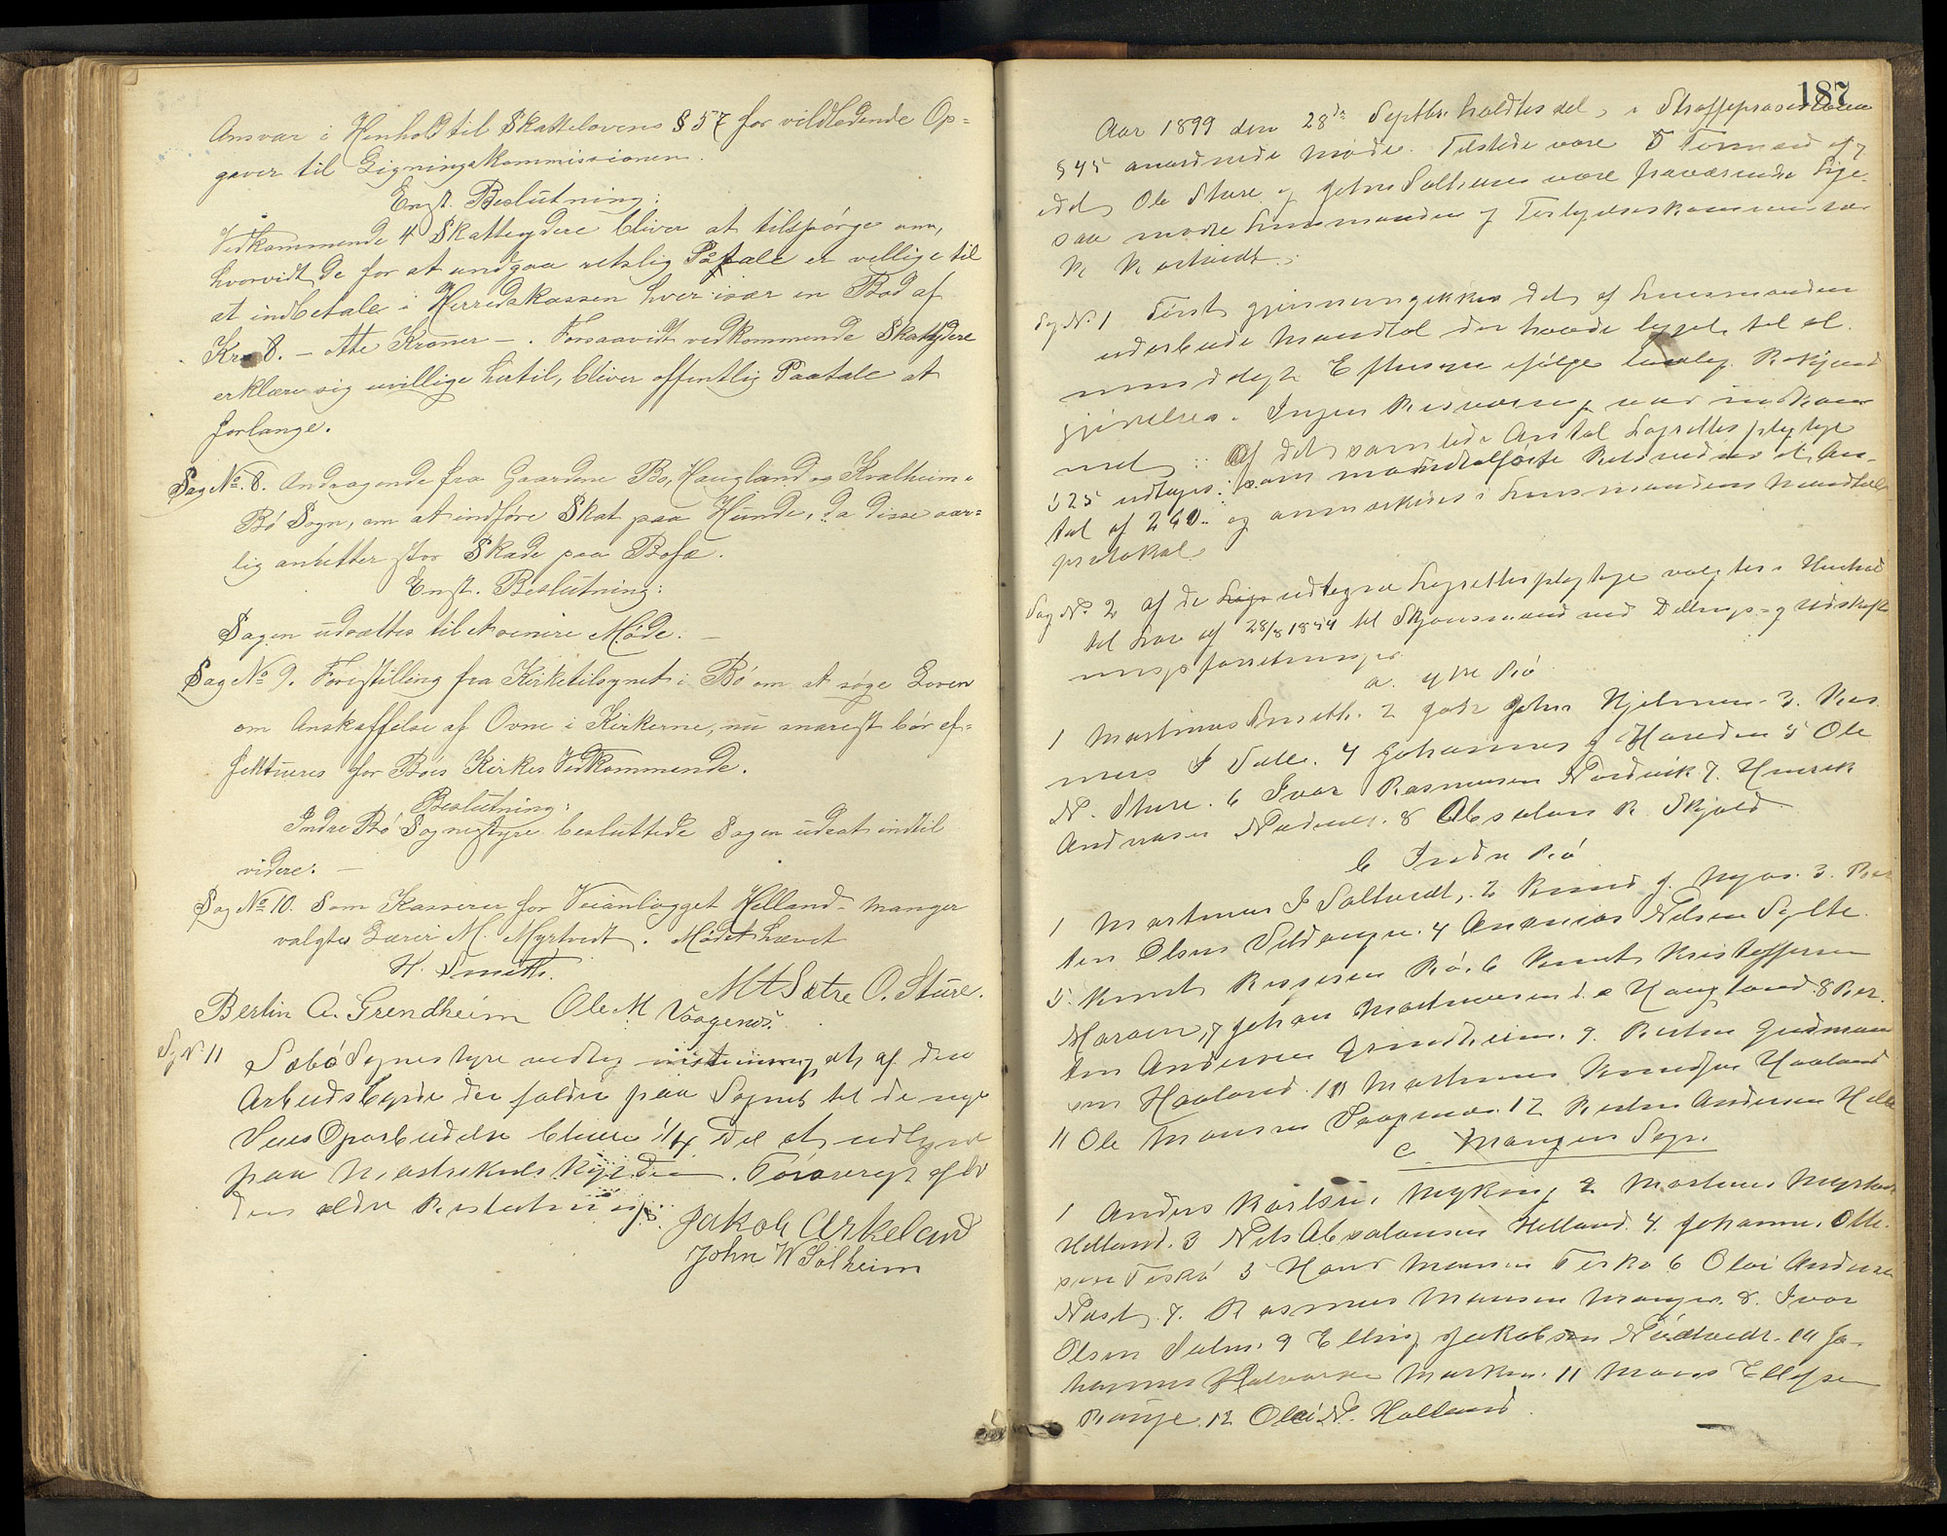 Ansvar i Henhold til Skattelovens § 57 for vildledende Op=
gaver til Ligningskommissionen.
Enst. Beslutning:
Vedkommende 4 Skatteydere bliver at tilspørge om,
hvorvidt de for at undgaa retslig Påtale er vellige til
at indbetale i Herredskassen hver især en Bod af
Kr. 8. – otte Kroner – . Forsaavidt vedkommende Skatydere
erklære sig uvillige hertil, bliver offentlig Paatale at
forlange.
Sag No. 8. Andragende fra Gaardene Bø, Haugland og Kvalheim i
Bø Sogn, om at indføre Skat paa Hunde, da disse aar=
lig anretter stor Skade paa Bofæ.
Enst. Beslutning:
Sagen udsættes til et senere Møde. –
Sag No 9. Forestilling fra Kirketilsynet i Bø om at søge Loven
om Anskaffelse af Ovne i Kirkerne, nu snarest bør ef=
fektueres for Bøes Kirkes Vedkommende.
Beslutning:
Indre Bø Sognestyre besluttede Sagen udsat indtil
videre. –
Sag No 10. Som Kasserer for Veianlægget Helland - Manger
valgtes Lærer M. Myrtvedt. Mødet hævet
H. Smith.
M A Sætre O. Sture.
Berlin A. Grendheim Ole M Vaagenes.
Sag N. 11 Sæbø Sognestyre vedtog at af den
Arbeidsbyrde der falder paa Sognet til de nye
Veies Oparbeidelse bliver 1/4 Del at udligne
paa Matrikulskylden.
den ældre Beslutning.
Jakob Askeland
John W Solheim
187
Aar 1899 den 28de Septbr. holdtes det, i Straffeprocesloven
§ 45 anordnede Møde. Tilstede vare 5 Formænd
idet Ole Sture og John Solheim vare fraværende Lige-
saa mødte Lensmanden og Forligelseskommissær
Sag No. 1 Først gjennemgikkes det af Lensmanden
udarbeide Mandtal der havde ligget til al-
mindeligt Eftersyn ifølge lovlig Bekjend
gjørelse. Ingen var indkom
met. Af det samlede Antal Lagrettespligtige
525 udtages som et An-
tal af 260 og anmærkedes i Lensmandens Mandtals
protokol.
Sag No. 2 Af de udtagne Lagrettespligtige valgtes i Henhold
til Lov af 28/8 1854 til Skjønsmænd ved Delings- og Udskift
ningsforretninger
a. ytre Bø
1 Martinus Smith. 2 John Hjelmen. 3. Ras
mus I Dale. 4 Johannes J Hareide 5 Ole
N. Sture. 6 Ivar Rasmussen Nordvik 7. Henrik
Andreasen 8 Absalon R. Skjold
b Indre Bø
1 Martinus I Soltvedt, 2 Knud J. Myar. 3. Ber
ten Olsen 4 Ananias Nilsen Sylte
5. Knut Bø. 6 Knut Kristoffersen
Marøen, 7 Johan Martinussen Haugland 8 Ber.
ten Andersen Grindheim. 9. Berten Gudmund
sen Haaland. 10 Martinus Knudsen Haaland
11 Ole Monsen Vaagenes. 12 Berten Andersen Hell
c. Manger Sogn
1 Anders Karlsen Myking 2 Martinus Myrtvedt
Helland. 3 Nils Absalonsen Helland. 4. Johannes Olle-
sen Toskø 5 Hans Monsen Toskø 6 Olai Andersen
7. Rasmus Monsen Manger. 8. Ivar
Olsen 9 Elling Jakobsen Nødtvedt. 10 Jo-
hannes Halvorsen Marken. 11 Mons Ellefsen
12 Olai N. Halland.